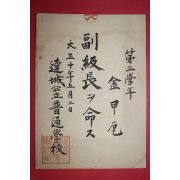 第三學年
金甲㐆
副級長ヲ命ス
大正十年五月二日
達城公立普通學校